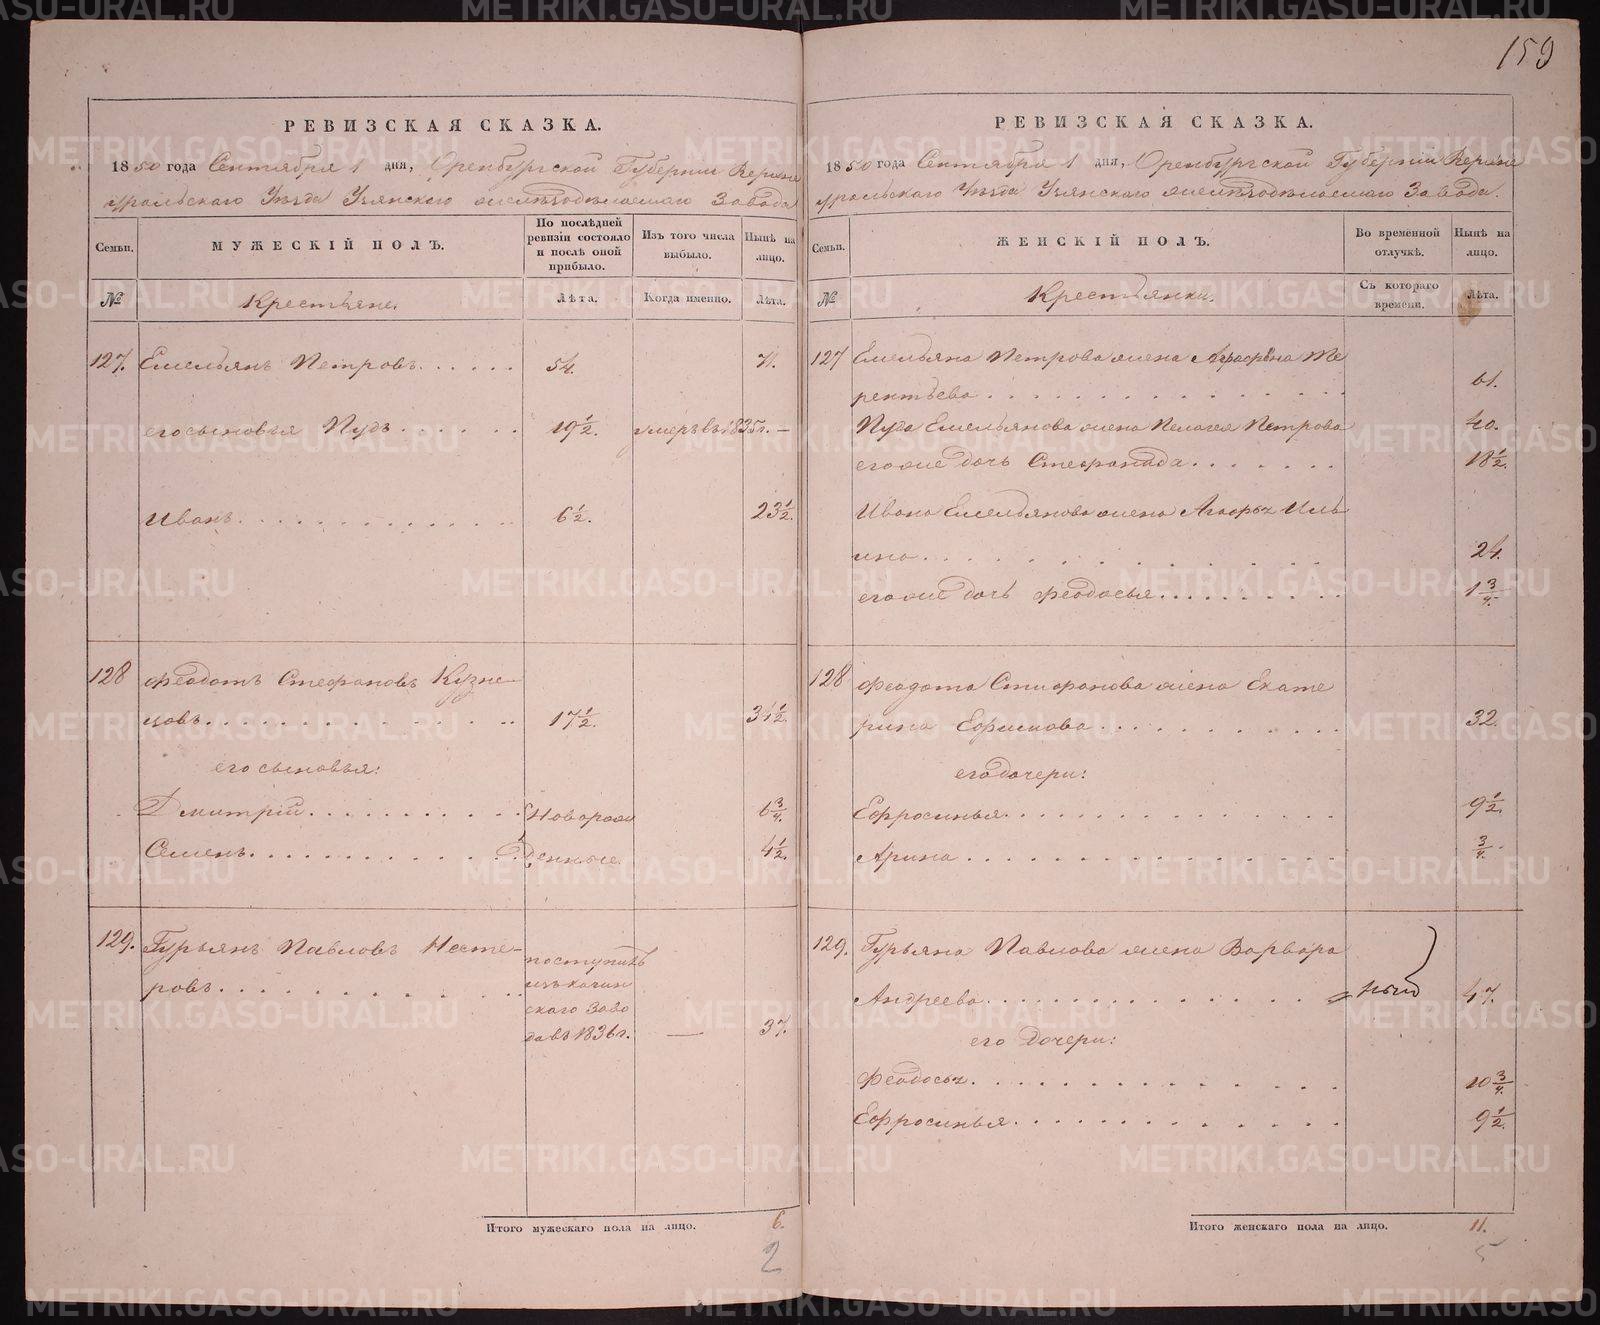 159
РЕВИЗСКАЯ СКАЗКА.
1850 года Сентября 1 дня, Оренбургской Губернии Верхне
уральского Уѣзда Узянского желѣзодѣлаемаго Завода
Семьи.
МУЖЕСКІЙ ПОЛЪ.
По послѣдней ревизіи состояло и послѣ оной прибыло.
Изъ того числа выбыло.
Нынѣ на лицо.
№
Крестьяне.
Лѣта.
Когда именно.
Лѣта.
127. Емельянъ Петровъ. 54. 71.
его сыновья Пудъ 19½. умеръ въ 1835г. —
Иванъ. 6½. 23½.
128 Феодотъ Стефановъ Кузне-
цовъ. 17½. 34½.
его сыновья:
Дмитрій. Новорож 6¾.
Семенъ. денные. 4½.
129. Гурьянъ Павловъ Несте-
ровъ. поступилъ
изъ кагин
скаго Заво
да въ 1836г. — 37.
Итого мужескаго пола на лицо. 6.
2
РЕВИЗСКАЯ СКАЗКА.
1850 года Сентября 1 дня, Оренбургской Губерніи Верхне
уральскаго Уѣзда Узянского желѣзодѣлаемаго Завода.
Семьи.
ЖЕНСКІЙ ПОЛЪ.
Во временной отлучкѣ.
Нынѣ на лицо.
№
Крестьянки.
Съ котораго времени.
Лѣта.
127 Емельяна Петрова жена Аграфена Те
рентьева 61.
Пуда Емельянова жена Пелагея Петрова 40.
его же дочь Стефанида. 18½.
Ивана Емельянова жена Агафья Иль
ина. 24.
его же дочь Феодосья. 1¾.
128 Феодота Стифанова жена Екате
рина Ефимова 32.
его дочери:
Ефросинья. 9½.
Арина ¾.
129. Гурьяна Павлова жена Варвара
Андреева. 47.
его дочери:
Феодосья. 10¾.
Ефросинья. 9½.
Итого женскаго пола на лицо. 11.
5
METRIKI.GASO-URAL.RU